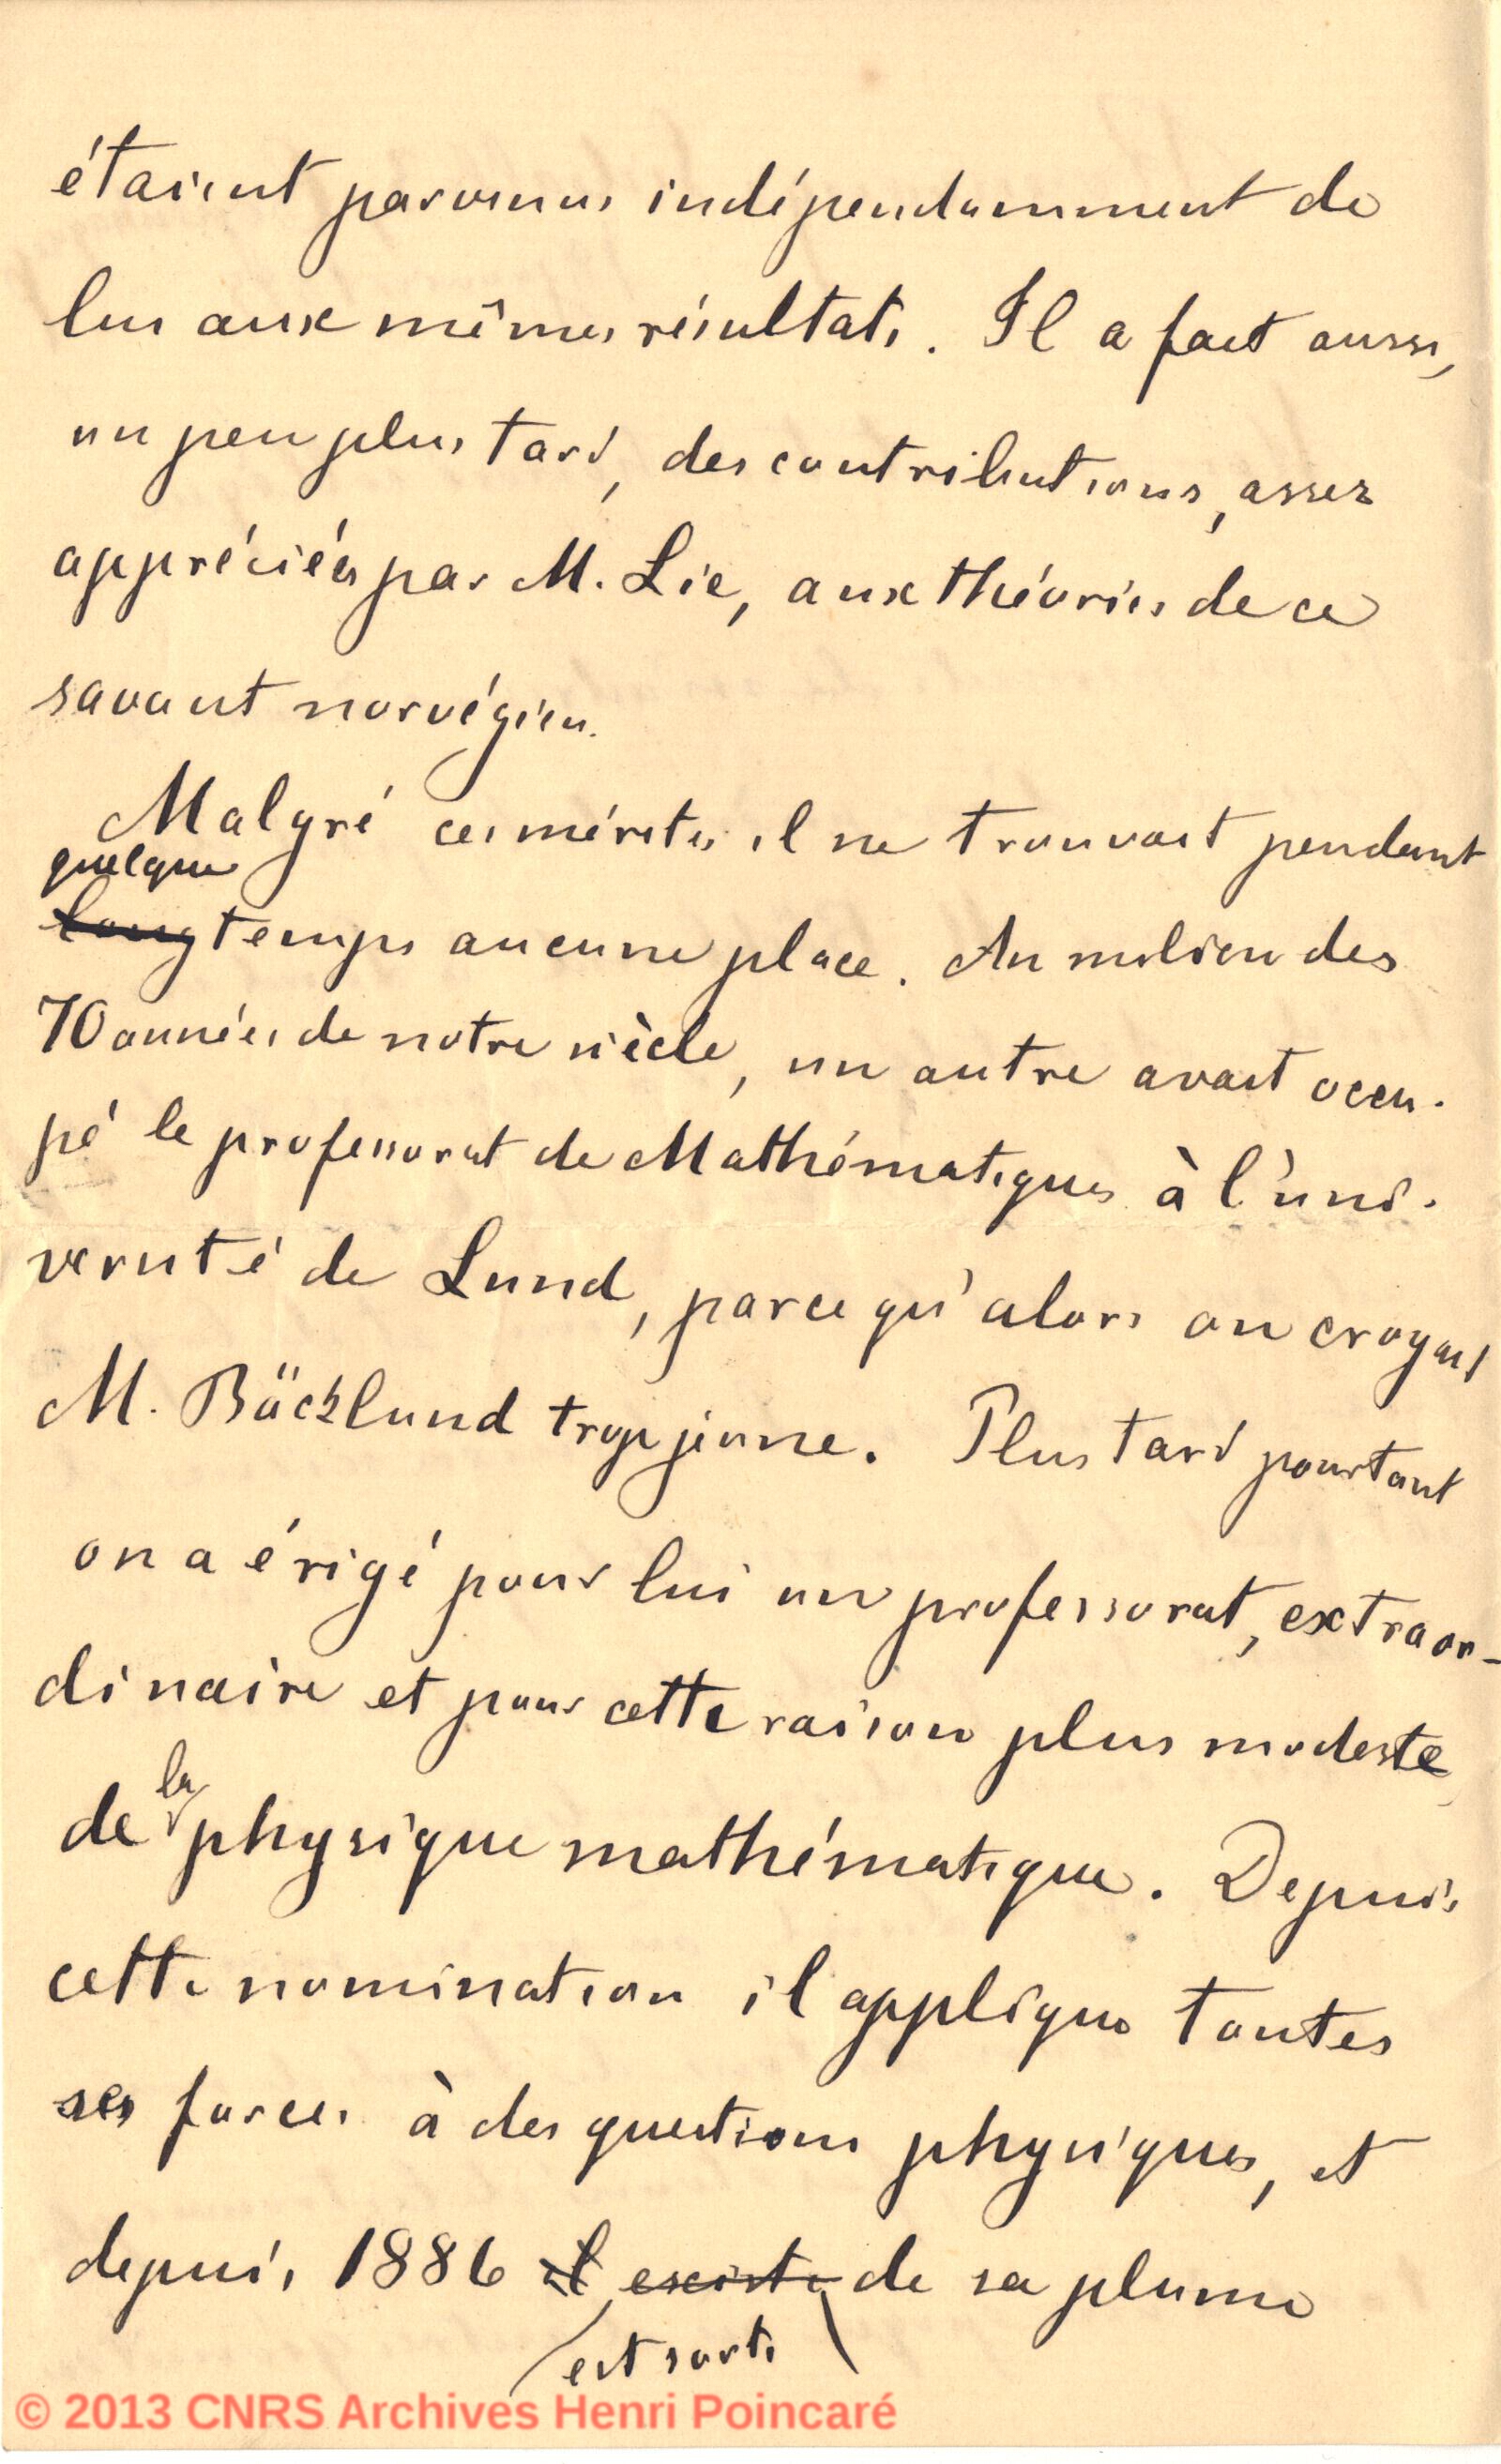 étaient parvenus indépendamment de
lui aux mêmes résultats. Il a fait aussi,
un peu plus tard, des contributions, assez
appréciées par M. Lie, aux théories de ce
savant norvégien.
Malgré ces mérites il ne trouvait pendant
quelque
long temps aucune place. Au milieu des
70 années de notre siècle, un autre avait occu-
pé le professorat de Mathématiques à l'uni-
versité de Lund, parce qu'alors on croyait
M. Bäcklund trop jeune. Plus tard pourtant
on a érigé pour lui un professorat, extraor-
dinaire et pour cette raison plus modeste,
de la physique mathématique. Depuis
cette nomination il applique toutes
ses forces à des questions physiques, et
depuis 1886 il existe de sa plume
est sorti
© 2013 CNRS Archives Henri Poincaré